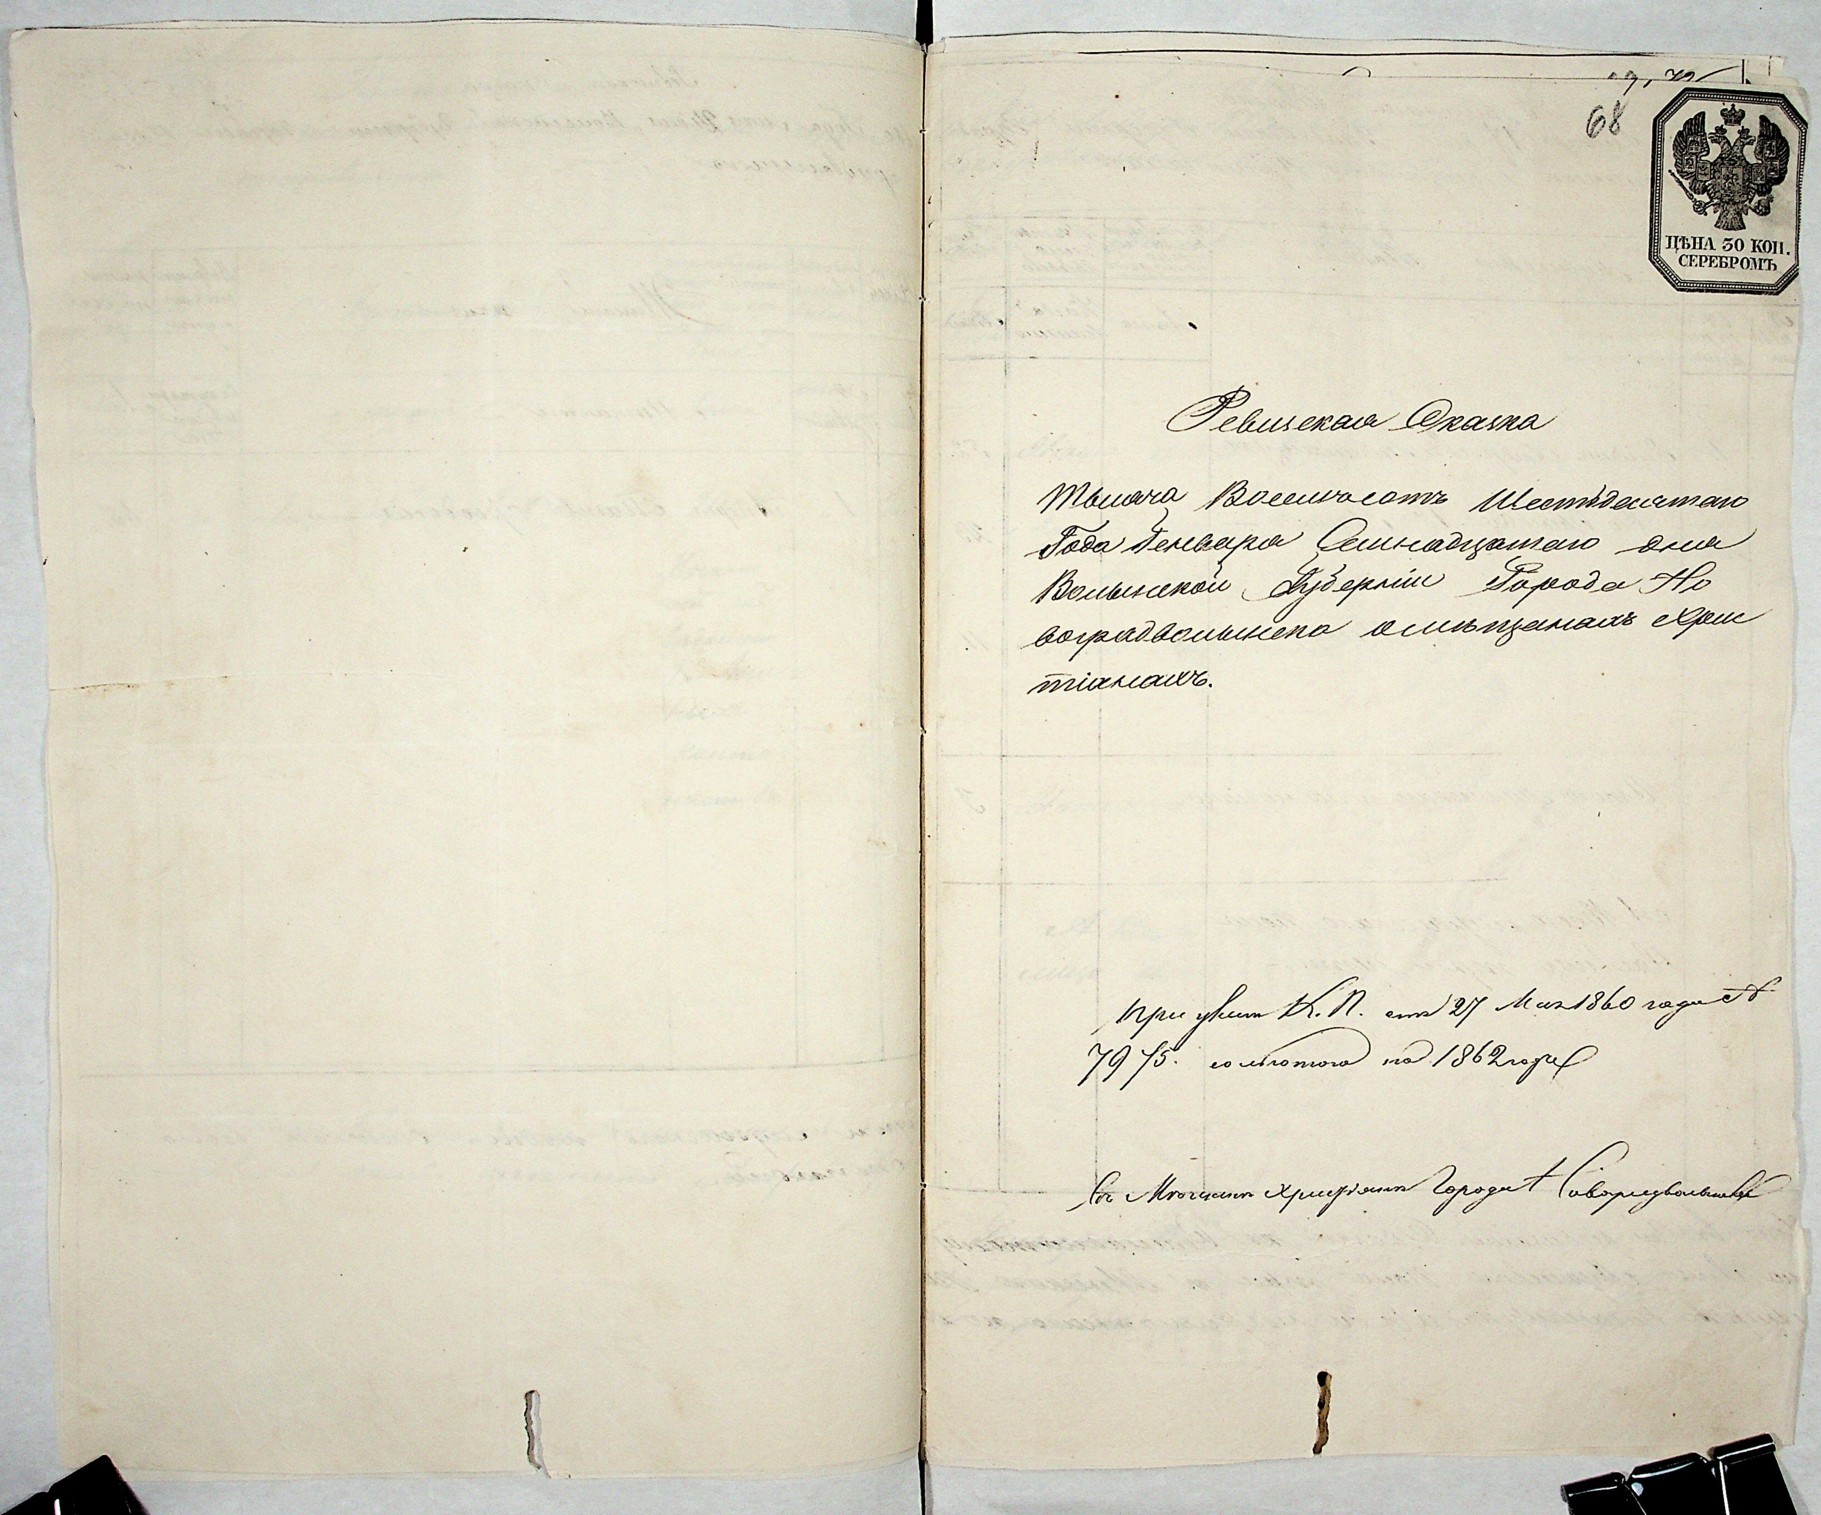 68
ЦѢНА 30 КОП.
СЕРЕБРОМЪ
Ревизская Сказка
Тысяча Восемьсотъ Шестьдесятаго
Года Генваря Семнадцатаго дня
Волынской Губерніи Города Но
воградволынска о мѣщанахъ хрис
тіанахъ.
При указѣ К. П. отъ 27 Мая 1860 года №
7975. 1862 года
Города Новоградволынска